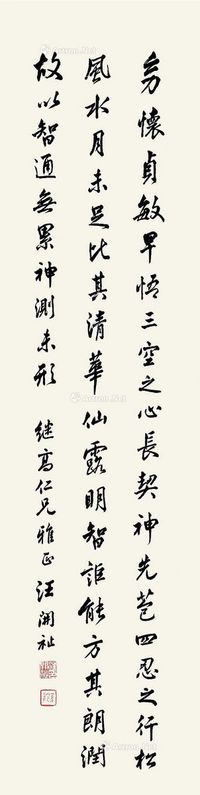 幼懷貞敏早悟三空之心長契神先苞四忍之行松
風水月未足比其清華仙露明智詎能方其朗潤
故以智通無累神測未形
继高仁兄雅正 汪開祉